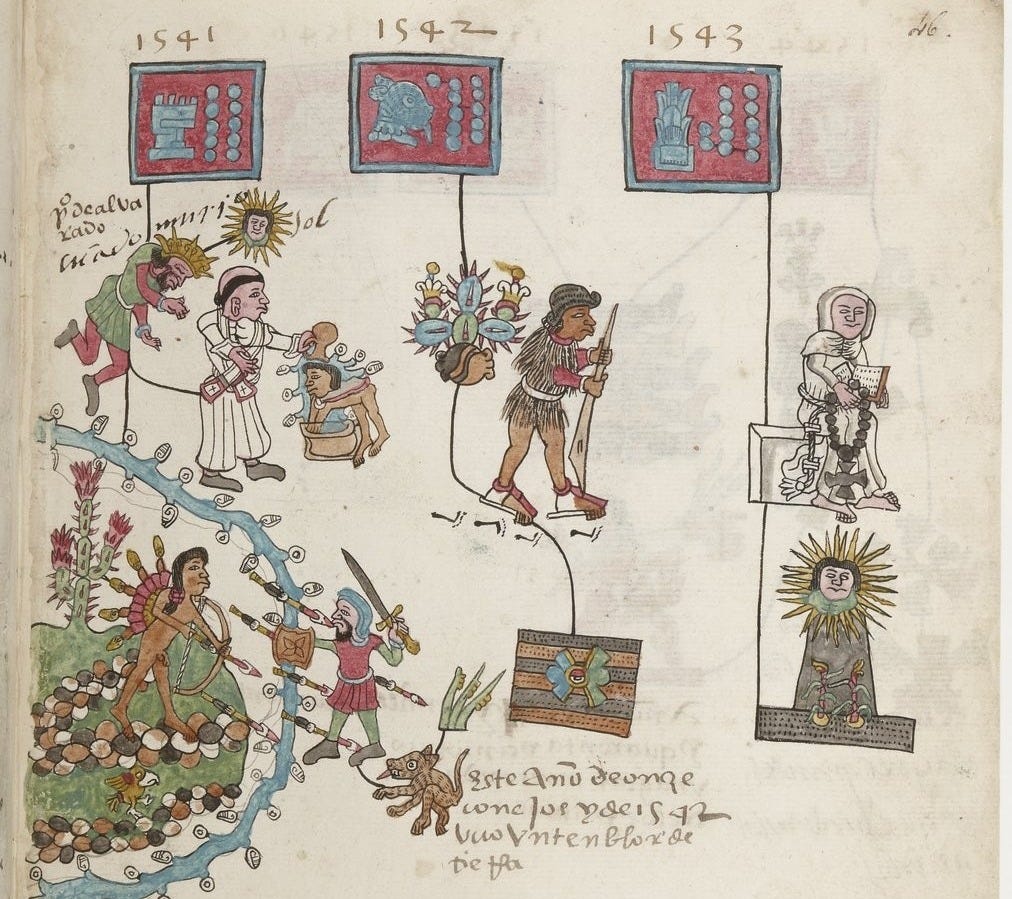 46.
1541
1542
1543
pº de alva
rado
murio
Sol
Este Año de onze
conejos y de 1542
Uuo Vn tenblor de
tieRa